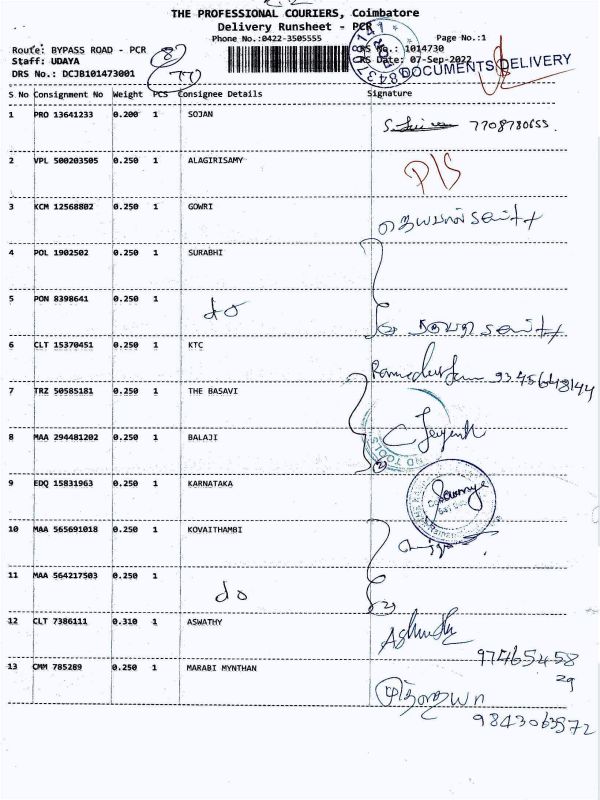 THE PROFESSIONAL COURIERS, Coimbatore
Delivery Runsheet - PCR
Phone No.:0422-3505555 Page No.:1
Route: BYPASS ROAD - PCR DRS No.: 1014730
Staff: UDAYA DRS Date: 07-Sep-2022
DOCUMENTS DELIVERY
DRS No.: DCJB101473001
S No Consignment No Weight PCS Consignee Details Signature
1 PRO 13641233 0.200 1 SOJAN 7708780655
2 VPL 500203505 0.250 1 ALAGIRISAMY P/S
3 KCM 12568802 0.250 1 GOWRI
4 POL 1902502 0.250 1 SURABHI
5 PON 8398641 0.250 1 do
6 CLT 15370451 0.250 1 KTC 9345648144
7 TRZ 50585181 0.250 1 THE BASAVI
8 MAA 294481202 0.250 1 BALAJI
9 EDQ 15831963 0.250 1 KARNATAKA
10 MAA 565691018 0.250 1 KOVAITHAMBI
11 MAA 564217503 0.250 1 do
12 CLT 7386111 0.310 1 ASWATHY
97465458
29
13 CMM 785289 0.250 1 MARABI MYNTHAN
9843063972